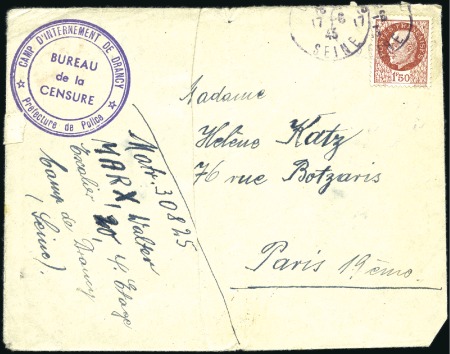 CAMP D'INTERNEMENT DE DRANCY
BUREAU
de la
CENSURE
Préfecture de Police
17 -6
43
SEINE
1F50
Madame
Helene Katz
76 rue Botzaris
Paris 19ème
Matr. 30825
MARX, Walter
Escalier 20 4 Etage
Camp de Drancy
(Seine).